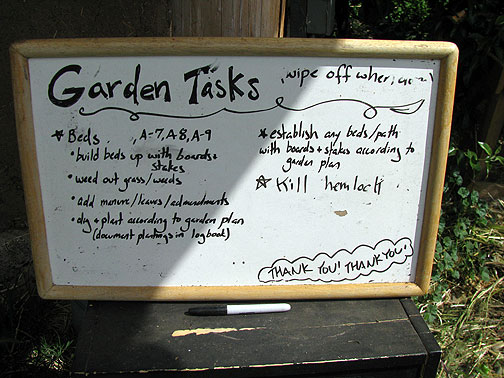 Garden Tasks
(wipe off when
Beds A-7, A-8, A-9
• build beds up with boards +
stakes
• weed out grass/weeds
• add manure/leaves/admendments
• dig + plant according to garden plan
(document plantings in logbook)
establish any beds/path
with boards + stakes according to
garden plan
Kill hemlock
THANK YOU! THANK YOU!